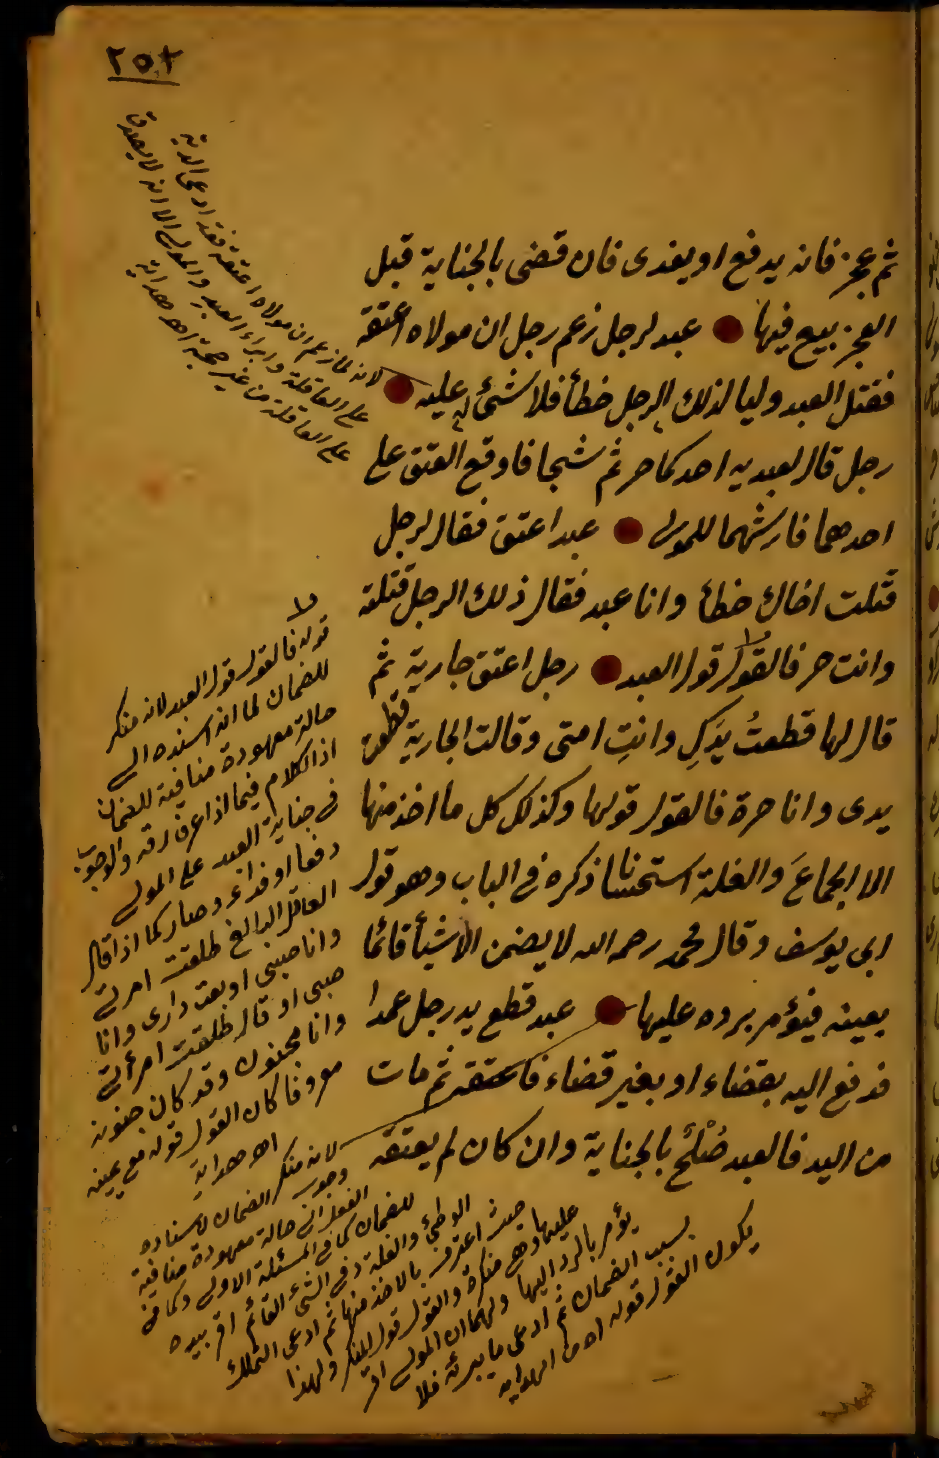 ٢٥٢
ثم عجز فانه يدفع او يفدى فان قضى بالجناية قبل
العجز بيع فيها ● عبد لرجل زعم رجل ان مولاه اعتقه
فقتل العبد وليا لذلك الرجل خطأ فلا شئ له عليه ●
رجل قال لعبديه احدكما حر ثم شجا فاوقع العتق على
احدهما فارشهما للمولى ● عبد اعتق فقال لرجل
قتلت اخاك خطأ وانا عبد فقال ذلك الرجل قتلته
وانت حر فالقول قول العبد ● رجل اعتق جارية ثم
قال لها قطعتُ يَدَكِ وانتِ امتى وقالت الجارية قطعت
يدى وانا حرة فالقول قولها وكذلك كل ما اخذ منها
الا الجماعَ والغلة استحسانا ذكره فى الباب وهو قول
ابى يوسف وقال محمد رحمه الله لا يضمن الا شيأ قائما
بعينه فيؤمر برده عليها ● عبد قطع يد رجل عمدا
فدفع اليه بقضاء او بغير قضاء فاعتقه ثم مات
من اليد فالعبد صُلْحٌ بالجناية وان كان لم يعتقه
لانه لما زعم ان مولاه اعتقه فقد ادعى الدية
على العاقلة وابراء العبد والمولى الا انه لا يصدق
على العاقلة من غير حجة اهـ هداية
قوله فالقول قول العبد لانه منكر
للضمان لما انه اسنده الى
حالة معهودة منافية للضمان
اذ الكلام فيما اذا عرف رقه والوجوب
فى جناية العبد على المولى
دفعا او فداء وصار كما اذا قال
العاقل البالغ طلقت امرتى
وانا صبى او بعت دارى وانا
صبى او قال طلقت امرأتى
وانا مجنون وقد كان جنونه
معروفا كان القول قوله مع يمينه
اهـ هداية
لانه منكر الضمان لاسناده
الفعل الى حالة معهودة منافية
للضمان كما فى المسئلة الاولى وكما فى
الوطئ والغلة وفى الشئ القائم اقر بيده
حيث اعترف بالاخذ منها ثم ادعى التملك
عليها وهى منكرة والقول قول المنكر ولهذا
يؤمر بالرد اليها ولهما ان المولى اقر
بسبب الضمان ثم ادعى ما يبرئه فلا
يكون القول قوله اهـ من الهداية